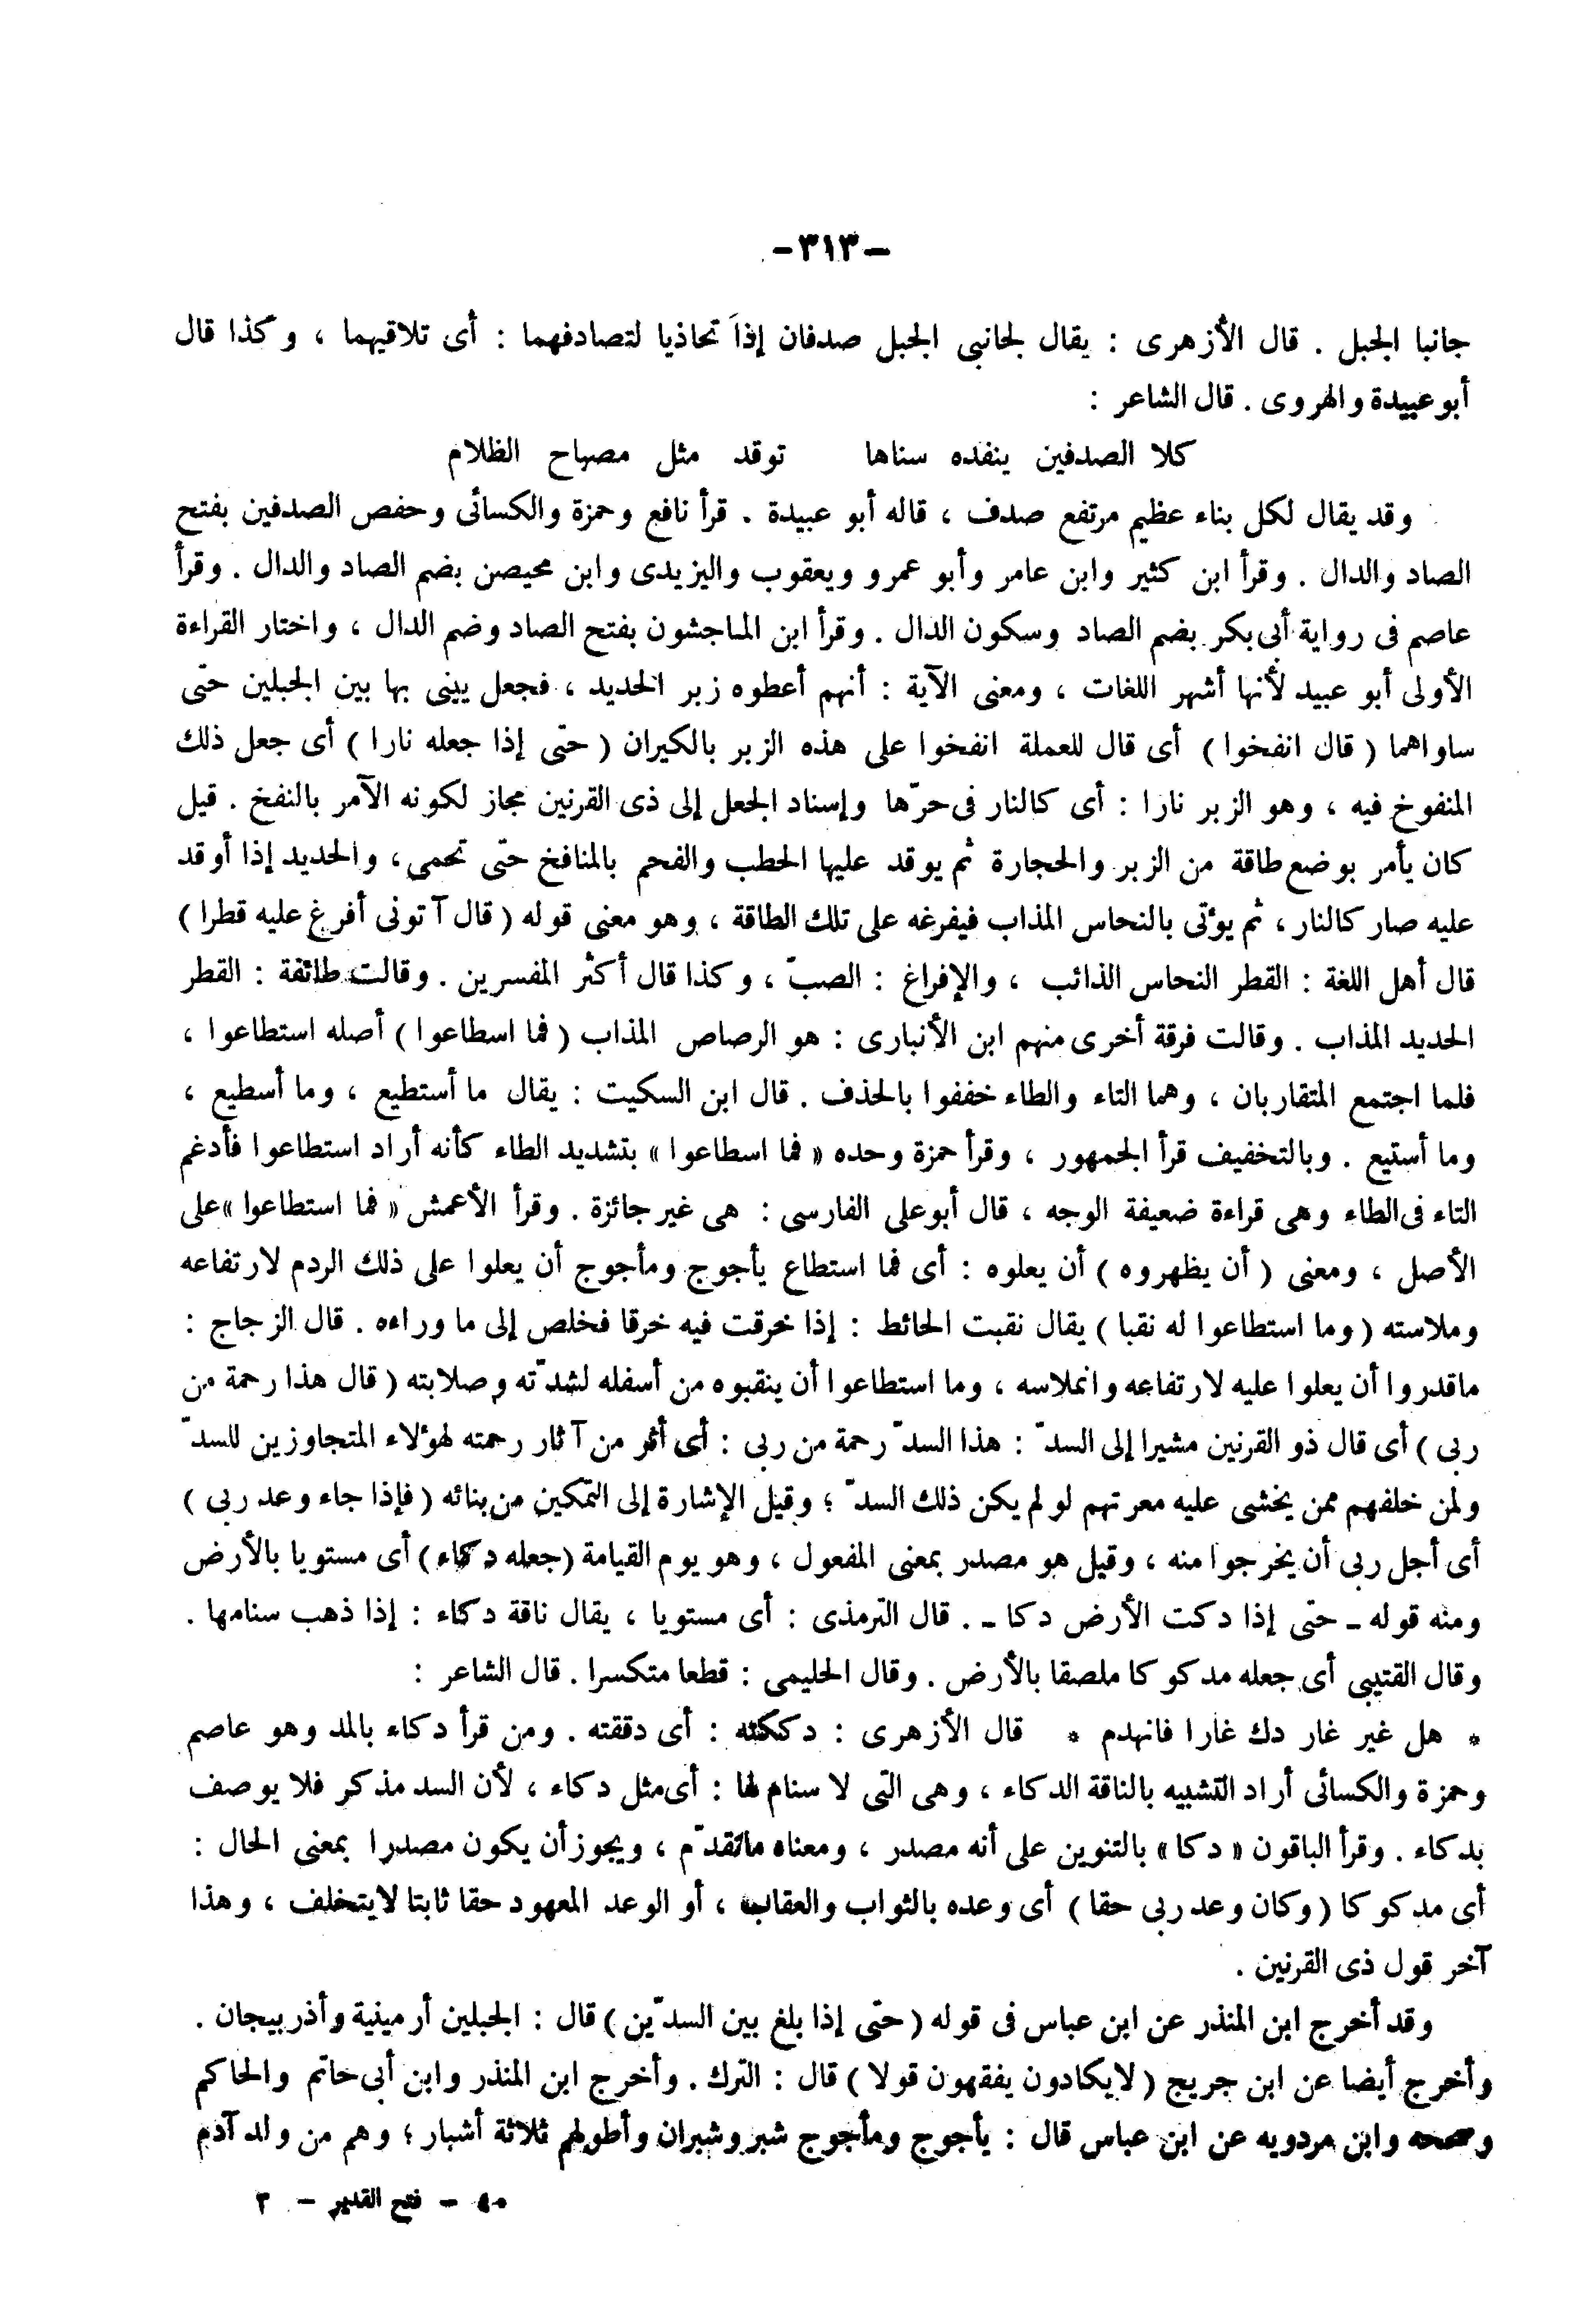 -٣١٣-
جانبا الجبل . قال الأزهرى : يقال لجانبى الجبل صدفان إذا تحاذيا لتصادفهما : أى تلاقيهما ، وكذا قال
أبو عبيدة والهروى . قال الشاعر :
كلا الصدفين ينفده سناها توقد مثل مصباح الظلام
وقد يقال لكل بناء عظيم مرتفع صدف ، قاله أبو عبيدة . قرأ نافع وحمزة والكسائى وحفص الصدفين بفتح
الصاد والدال . وقرأ ابن كثير وابن عامر وأبو عمرو ويعقوب واليزيدى وابن محيصن بضم الصاد والدال . وقرأ
عاصم فى رواية أبى بكر بضم الصاد وسكون الدال . وقرأ ابن الماجشون بفتح الصاد وضم الدال ، واختار القراءة
الأولى أبو عبيد لأنها أشهر اللغات ، ومعنى الآية : أنهم أعطوه زبر الحديد ، فجعل يبنى بها بين الجبلين حتى
ساواهما ( قال انفخوا ) أى قال للعملة انفخوا على هذه الزبر بالكيران ( حتى إذا جعله نارا ) أى جعل ذلك
المنفوخ فيه ، وهو الزبر نارا : أى كالنار فى حرّها وإسناد الجعل إلى ذى القرنين مجاز لكونه الآمر بالنفخ . قيل
كان يأمر بوضع طاقة من الزبر والحجارة ثم يوقد عليها الحطب والفحم بالمنافخ حتى تحمى ، والحديد إذا أوقد
عليه صار كالنار ، ثم يؤتى بالنحاس المذاب فيفرغه على تلك الطاقة ، وهو معنى قوله ( قال آتونى أفرغ عليه قطرا )
قال أهل اللغة : القطر النحاس الذائب ، والإفراغ : الصبّ ، وكذا قال أكثر المفسرين . وقالت طائفة : القطر
الحديد المذاب . وقالت فرقة أخرى منهم ابن الأنبارى : هو الرصاص المذاب ( فما اسطاعوا ) أصله استطاعوا ،
فلما اجتمع المتقاربان ، وهما التاء والطاء خففوا بالحذف . قال ابن السكيت : يقال ما أستطيع ، وما أسطيع ،
وما أستيع . وبالتخفيف قرأ الجمهور ، وقرأ حمزة وحده « فما اسطاعوا » بتشديد الطاء كأنه أراد استطاعوا فأدغم
التاء فى الطاء وهى قراءة ضعيفة الوجه ، قال أبو على الفارسى : هى غير جائزة . وقرأ الأعمش « فما استطاعوا » على
الأصل ، ومعنى ( أن يظهروه ) أن يعلوه : أى فما استطاع يأجوج ومأجوج أن يعلوا على ذلك الردم لارتفاعه
وملاسته ( وما استطاعوا له نقبا ) يقال نقبت الحائط : إذا خرقت فيه خرقا فخلص إلى ما وراءه . قال الزجاج :
ماقدروا أن يعلوا عليه لارتفاعه وانملاسه ، وما استطاعوا أن ينقبوه من أسفله لشدّته وصلابته ( قال هذا رحمة من
ربى ) أى قال ذو القرنين مشيرا إلى السدّ : هذا السدّ رحمة من ربى : أى أثر من آثار رحمته لهؤلاء المتجاوزين للسدّ
ولمن خلفهم ممن يخشى عليه معرتهم لو لم يكن ذلك السدّ ؛ وقيل الإشارة إلى التمكين من بنائه ( فإذا جاء وعد ربى )
أى أجل ربى أن يخرجوا منه ، وقيل هو مصدر بمعنى المفعول ، وهو يوم القيامة ( جعله دكاء ) أى مستويا بالأرض
ومنه قوله - حتى إذا دكت الأرض دكا - . قال الترمذى : أى مستويا ، يقال ناقة دكاء : إذا ذهب سنامها .
وقال القتيبى أى جعله مدكوكا ملصقا بالأرض . وقال الحليمى : قطعا متكسرا . قال الشاعر :
* هل غير غار دك غارا فانهدم * قال الأزهرى : دككته : أى دققته . ومن قرأ دكاء بالمد وهو عاصم
وحمزة والكسائى أراد التشبيه بالناقة الدكاء ، وهى التى لا سنام لها : أى مثل دكاء ، لأن السد مذكر فلا يوصف
بدكاء . وقرأ الباقون « دكا » بالتنوين على أنه مصدر ، ومعناه ماتقدّم ، ويجوز أن يكون مصدرا بمعنى الحال :
أى مدكوكا ( وكان وعد ربى حقا ) أى وعده بالثواب والعقاب ، أو الوعد المعهود حقا ثابتا لايتخلف ، وهذا
آخر قول ذى القرنين .
وقد أخرج ابن المنذر عن ابن عباس فى قوله ( حتى إذا بلغ بين السدّين ) قال : الجبلين أرمينية وأذربيجان .
وأخرج أيضا عن ابن جريج ( لايكادون يفقهون قولا ) قال : الترك . وأخرج ابن المنذر وابن أبى حاتم والحاكم
وصححه وابن مردويه عن ابن عباس قال : يأجوج ومأجوج شبر وشبران وأطولهم ثلاثة أشبار ؛ وهم من ولد آدم
٤٠ - فتح القدير - ٣